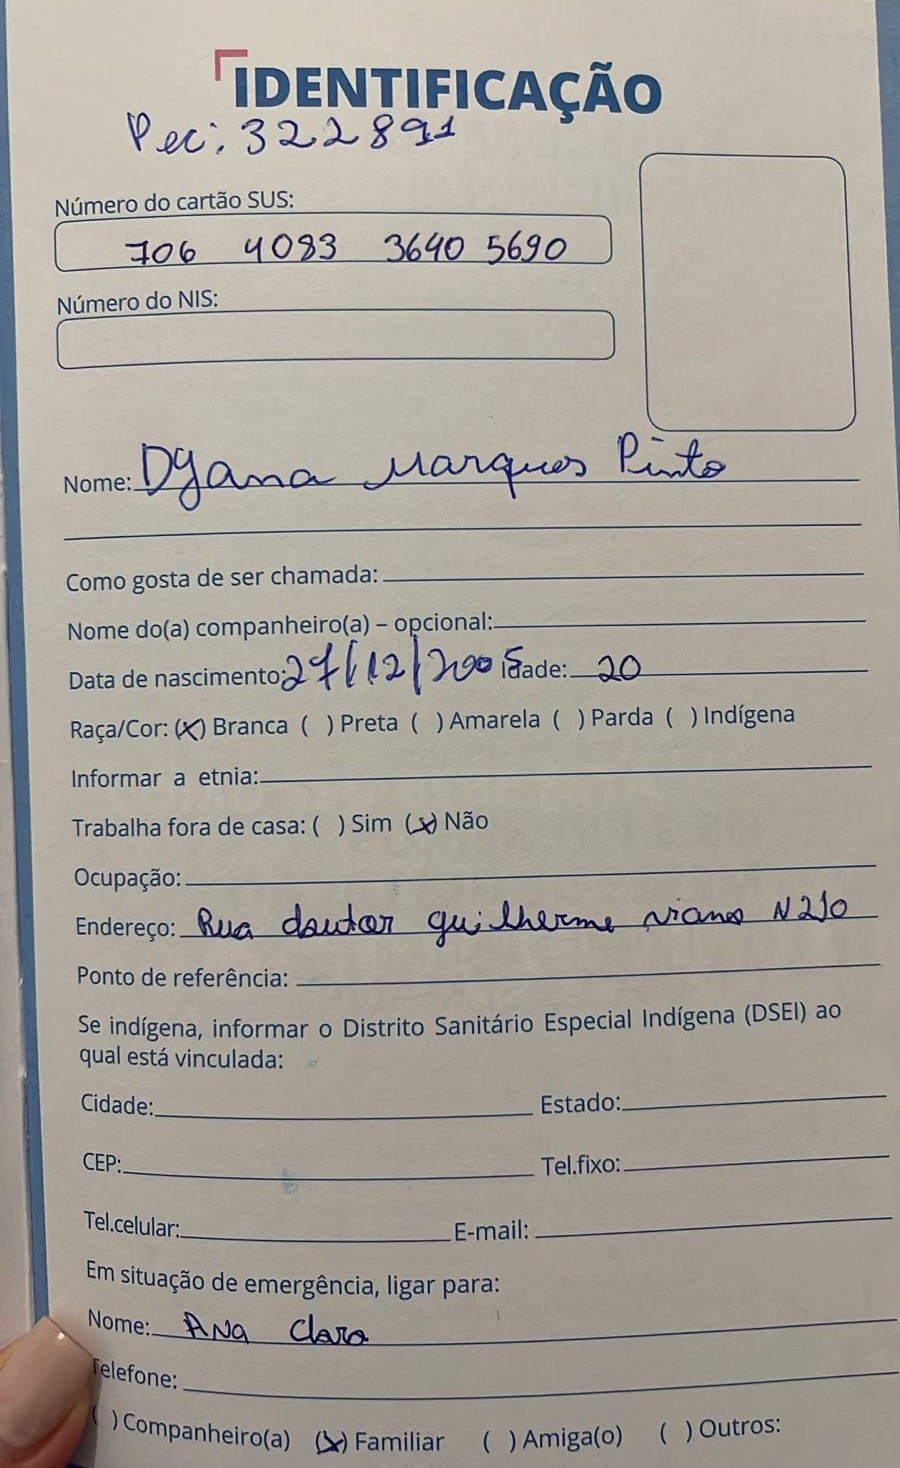 IDENTIFICAÇÃO
Pec: 322891
Número do cartão SUS:
706 4083 3640 5690
Número do NIS:
Nome: Dyana Marques Pinto
Como gosta de ser chamada:
Nome do(a) companheiro(a) – opcional:
Data de nascimento: 27/12/2005 Idade: 20
Raça/Cor: (X) Branca ( ) Preta ( ) Amarela ( ) Parda ( ) Indígena
Informar a etnia:
Trabalha fora de casa: ( ) Sim (X) Não
Ocupação:
Endereço: Rua doutor guilherme viana N 210
Ponto de referência:
Se indígena, informar o Distrito Sanitário Especial Indígena (DSEI) ao
qual está vinculada:
Cidade: Estado:
CEP: Tel.fixo:
Tel.celular: E-mail:
Em situação de emergência, ligar para:
Nome: Ana Clara
Telefone:
( ) Companheiro(a) (X) Familiar ( ) Amiga(o) ( ) Outros: